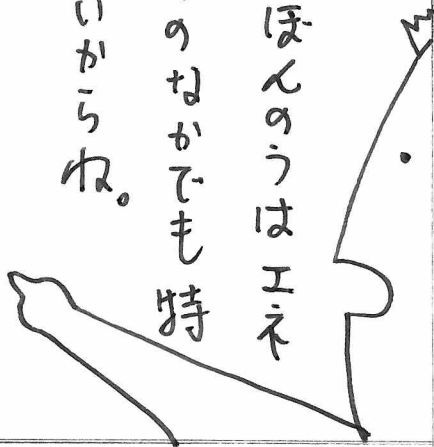 ぼんのうはエネ
のなかでも特
いからね。